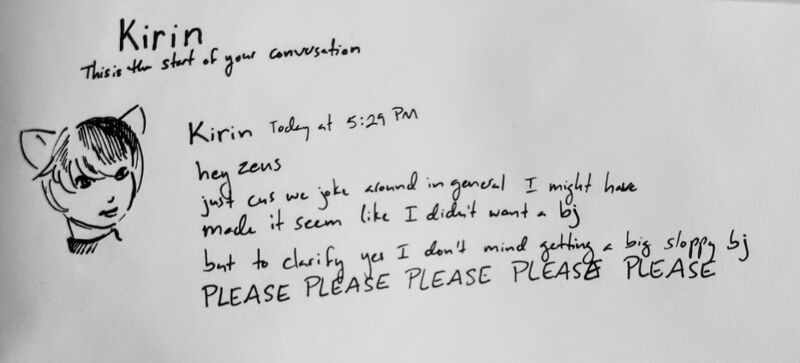 Kirin
This is the start of your convusation
Kirin Today at 5:29 PM
hey zeus
just cus we joke around in general I might have
made it seem like I didn't want a bj
but to clarify yes I don't mind getting a big sloppy bj
PLEASE PLEASE PLEASE PLEASE PLEASE